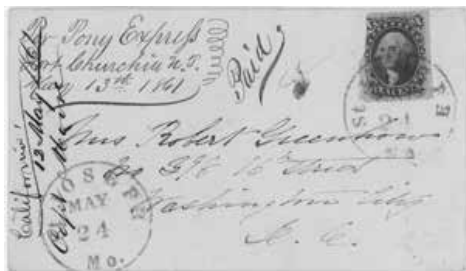 Pr Pony Express
Fort Churchill N.T.
May 13th 1861
Paid
California!
13 May 1861
Mrs Robert Greenhow
16th Street
Washington City
D. C.
ST
21
MO
JOSEPH
MAY
24
Mo.